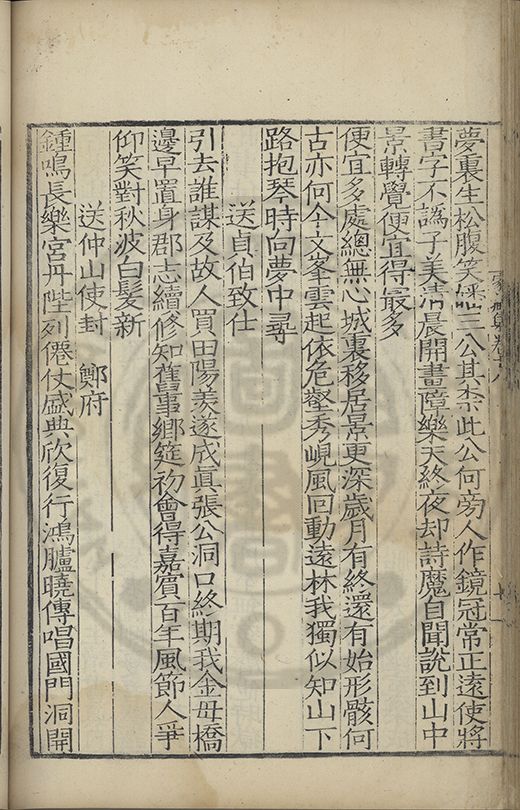 夢裏生松腹笑㩻三公其柰此公何旁人作鏡冠常正遠使將
書字不譌子美清晨開畫障樂天終夜却詩魔自聞說到山中
景轉覺便宜得㝡多
便宜多處總無心城裏移居景更深歲月有終還有始形骸何
古亦何今文峯雲起依危壑秀峴風回動遠林我獨似知山下
路抱琴時向夢中尋
送貞伯致仕
引去誰謀及故人買田陽羨遂成眞張公洞口終期我金毋橋
邊早置身郡志續修知舊事鄉筵初會得嘉賓百年風節人爭
仰笑對秋波白髮新
送仲山使封 鄭府
鍾鳴長樂宮丹陛列僊仗盛典欣復行鴻臚曉傳唱國門洞開